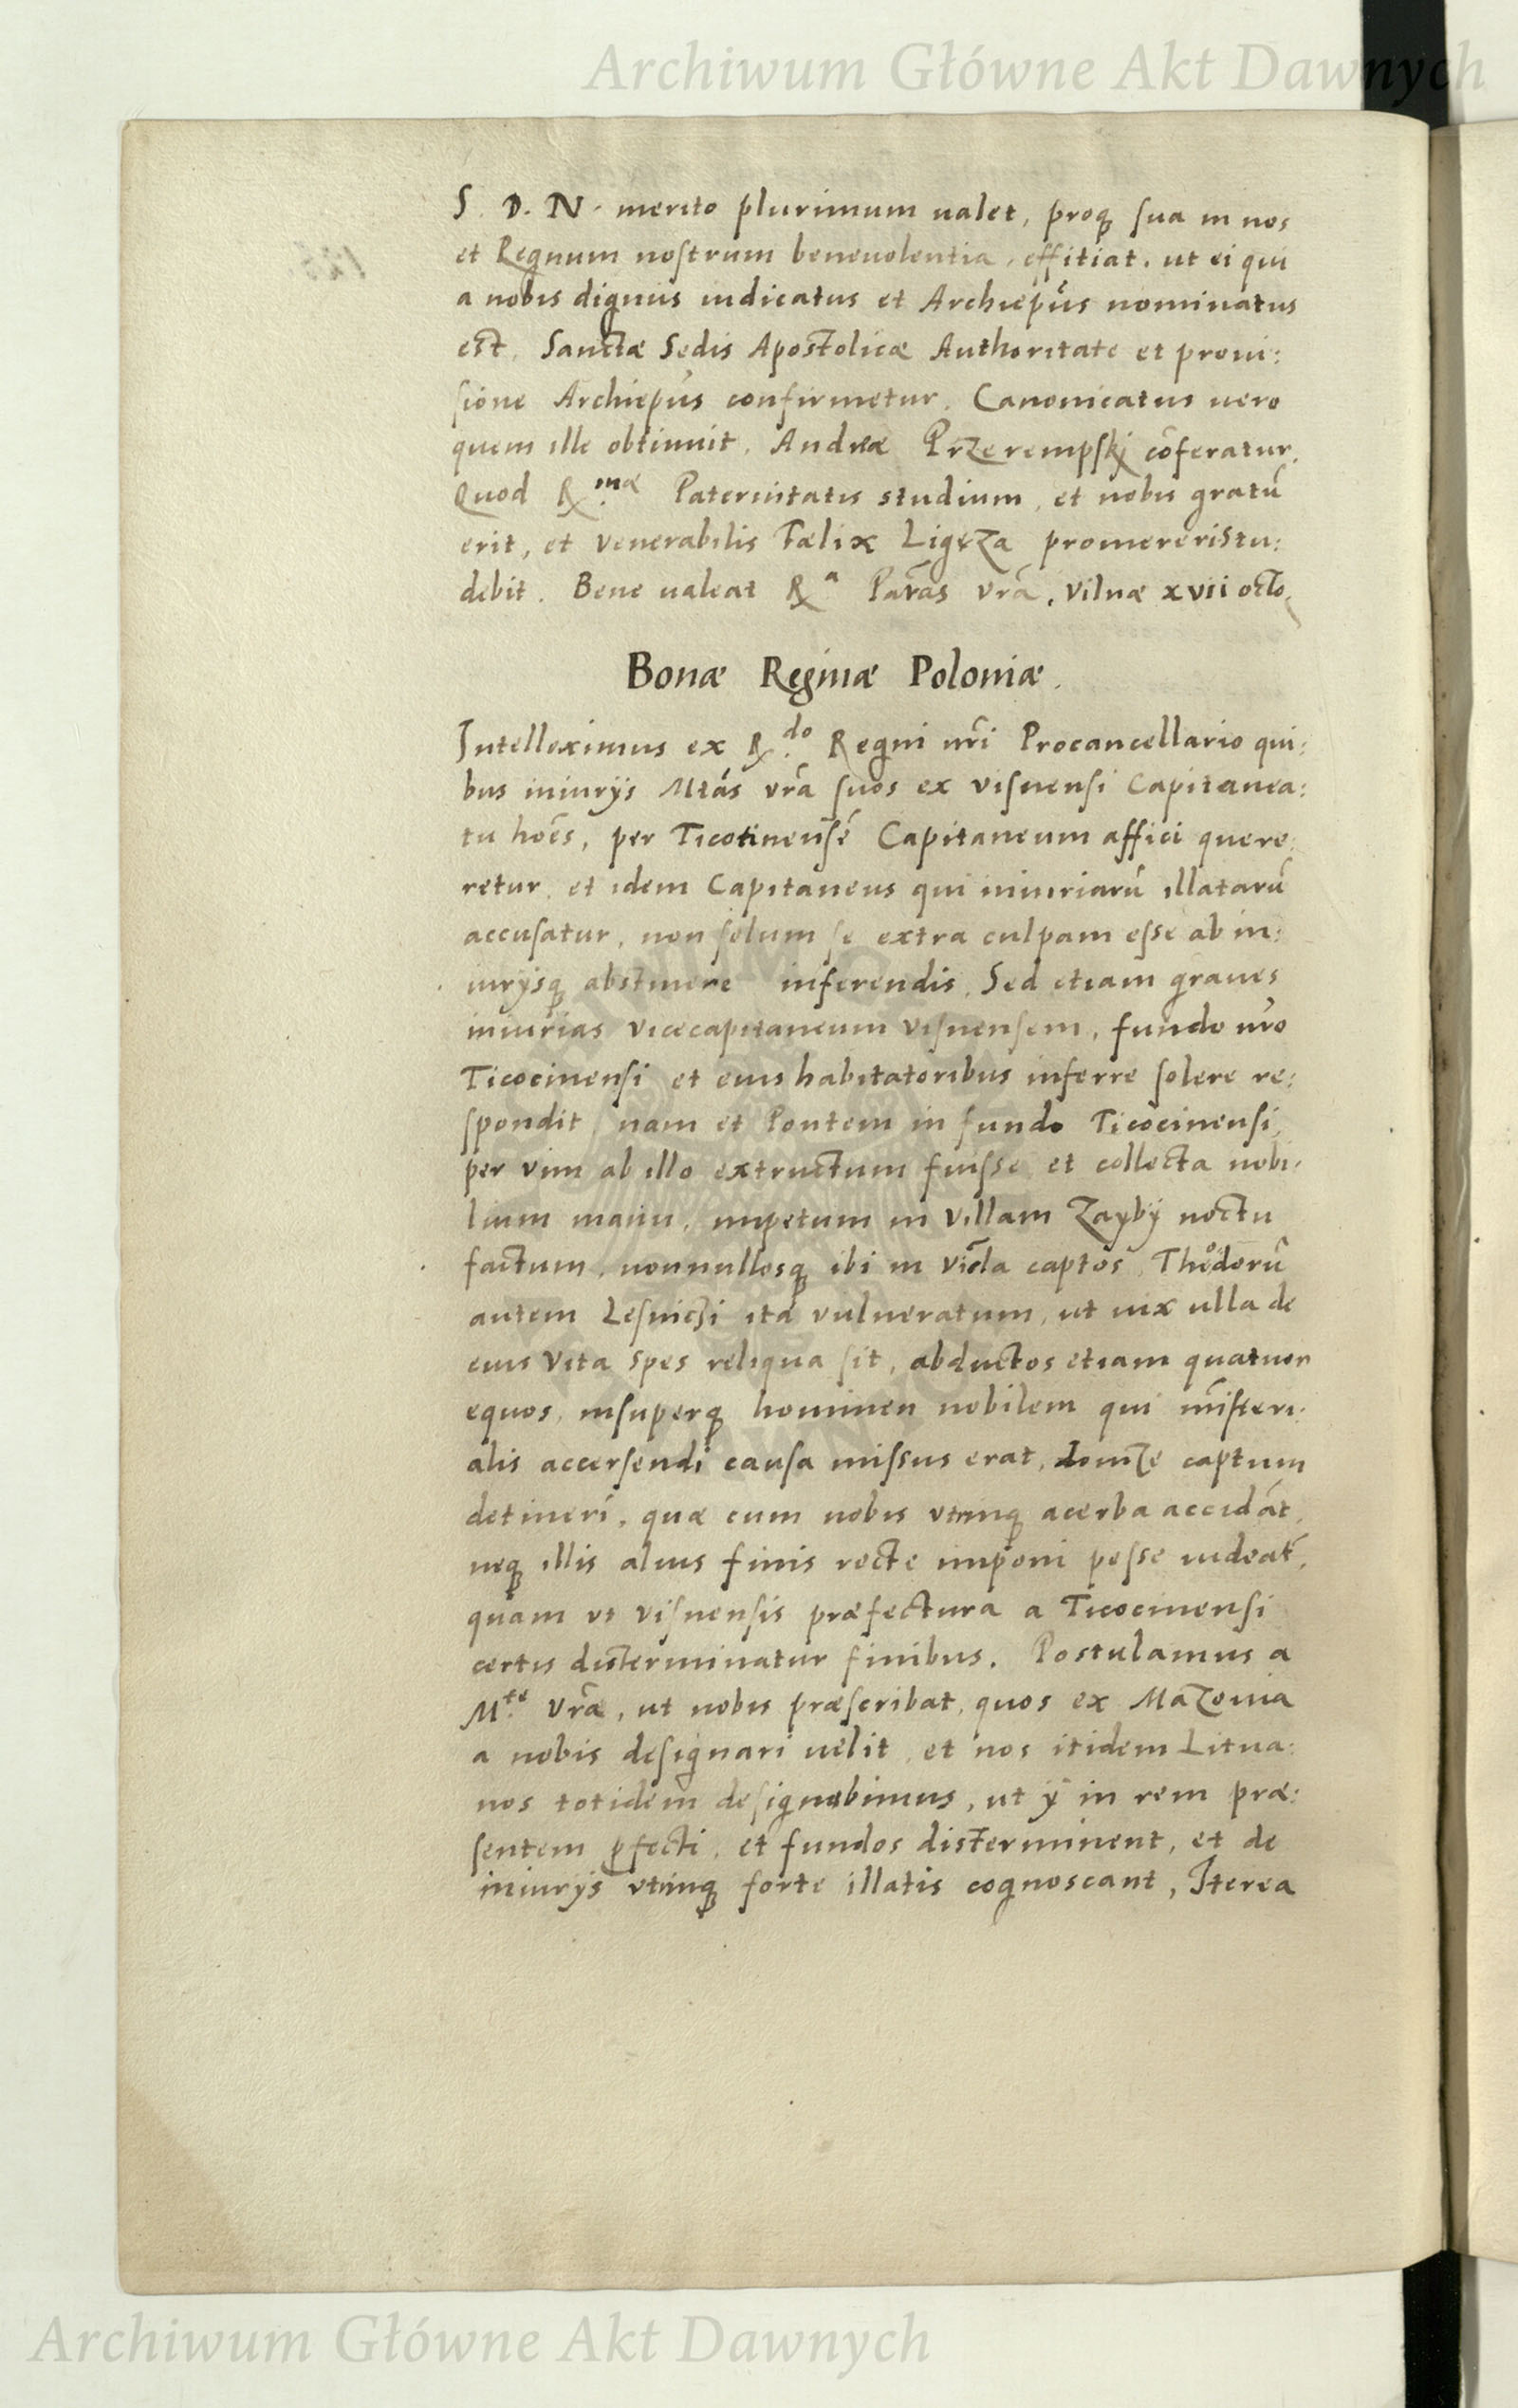 Archiwum Główne Akt Dawnych
S. D. N. merito plurimum ualet, proq̃ sua in nos
et Regnum nostrum beneuolentia, effitiat, ut ei qui
a nobis dignus iudicatus et Archiepũs nominatus
est, Sanctæ Sedis Apostolicæ Authoritate et proui:
sione Archiepũs confirmetur. Canonicatus uero
quem ille obtinuit, Andreæ Przerempskj cõferatur.
Quod R.mæ Paternitatis studium, et nobis gratũ
erit, et Venerabilis Fælix Ligęza promereri stu:
debit. Bene ualeat R.a Patãs Vrã, Vilnæ xvii octo.
Bonæ Reginæ Poloniæ.
Intelleximus ex R.do Regni nr̃i Procancellario qui:
bus iniurijs Mtãs vrã suos ex visnensi Capitanea:
tu hoẽs, per Ticotinensẽ Capitaneum affici quere:
retur, et idem Capitaneus qui iniuriarũ illatarũ
accusatur, non solum se extra culpam esse ab in:
iurijsq̃ abstinere inferendis, Sed etiam graues
iniurias vicecapitaneum visnensem, fundo nrõ
Ticocinensi et eius habitatoribus inferre solere re:
spondit, nam et Pontem in fundo Ticocinensi,
per vim ab illo extructum fuisse, et collecta nobi:
lium manu, impetum in villam Zayby noctu
factum, nonnullosq̃ ibi in vicła captos, Theodorũ
autem Lesnicżi ita vulneratum, ut uix ulla de
eius vita spes reliqua sit, abductos etiam quatuor
equos, insuperq̃ hominen nobilem qui mĩsteri:
alis accersendi causa missus erat, Lomże captum
detineri, quæ cum nobis vtrinq̃ acerba accidãt,
neq̃ illis alius finis recte imponi posse uideat̃,
quam vt visnensis præfectura a Ticocinensi
certis disterminatur finibus. Postulamus a
M.te Vrã, ut nobis præscribat, quos ex Mazouia
a nobis designari uelit, et nos itidem Litua:
nos totidem designabimus, ut ÿ in rem præ:
sentem ꝓfecti, et fundos disterminent, et de
iniurijs vtrinq̃ forte illatis cognoscant, Iterea
Archiwum Główne Akt Dawnych